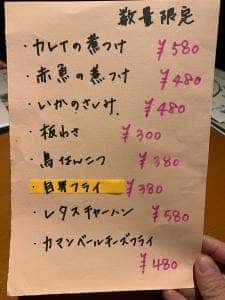 数量限定
・カレイの煮つけ ¥580
・赤魚の煮つけ ¥480
・いかのさしみ ¥480
・板わさ ¥300
・鳥なんこつ ¥380
・自家製フライ ¥380
・レタスチャーハン ¥580
・カマンベールチーズフライ
¥480